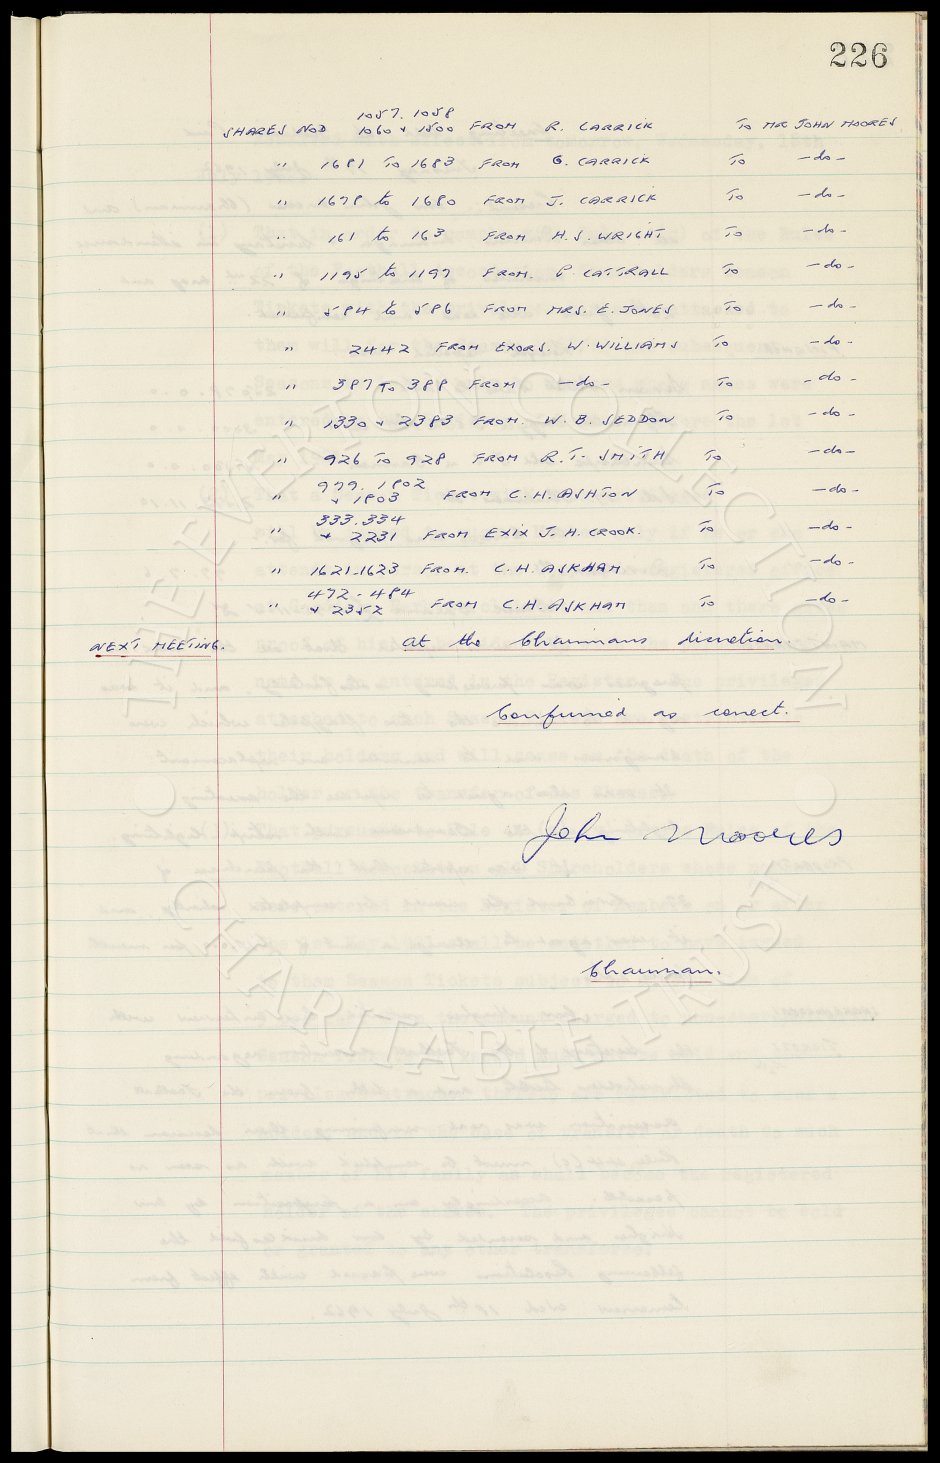 226
1057. 1058
SHARES NOD 1060 & 1500 FROM R. CARRICK TO MR JOHN MOORES
" 1681 TO 1683 FROM G. CARRICK TO -do-
" 1678 to 1680 FROM J. CARRICK TO -do-
" 161 to 163 FROM H.S. WRIGHT TO -do-
" 1195 to 1197 FROM. P. CATTRALL TO -do-
" 584 to 586 FROM MRS. E. JONES TO -do-
" 2442 FROM EXORS. W. WILLIAMS TO -do-
" 387 TO 388 FROM -do- TO -do-
" 1330 & 2383 FROM. W.B. SEDDON TO -do-
" 926 TO 928 FROM R.T. SMITH TO -do-
979. 1802
" & 1803 FROM C.H. ASHTON TO -do-
333.334
" & 2231 FROM EXIX J.H. CROOK. TO -do-
" 1621-1623 FROM. C.H. ASKHAM TO -do-
472-484
" & 2352 FROM C.H. ASKHAM TO -do-
NEXT MEETING. at the Chairmans discretion.
Confirmed as correct.
John Moores
Chairman.
THE EVERTON COLLECTION
CHARITABLE TRUST